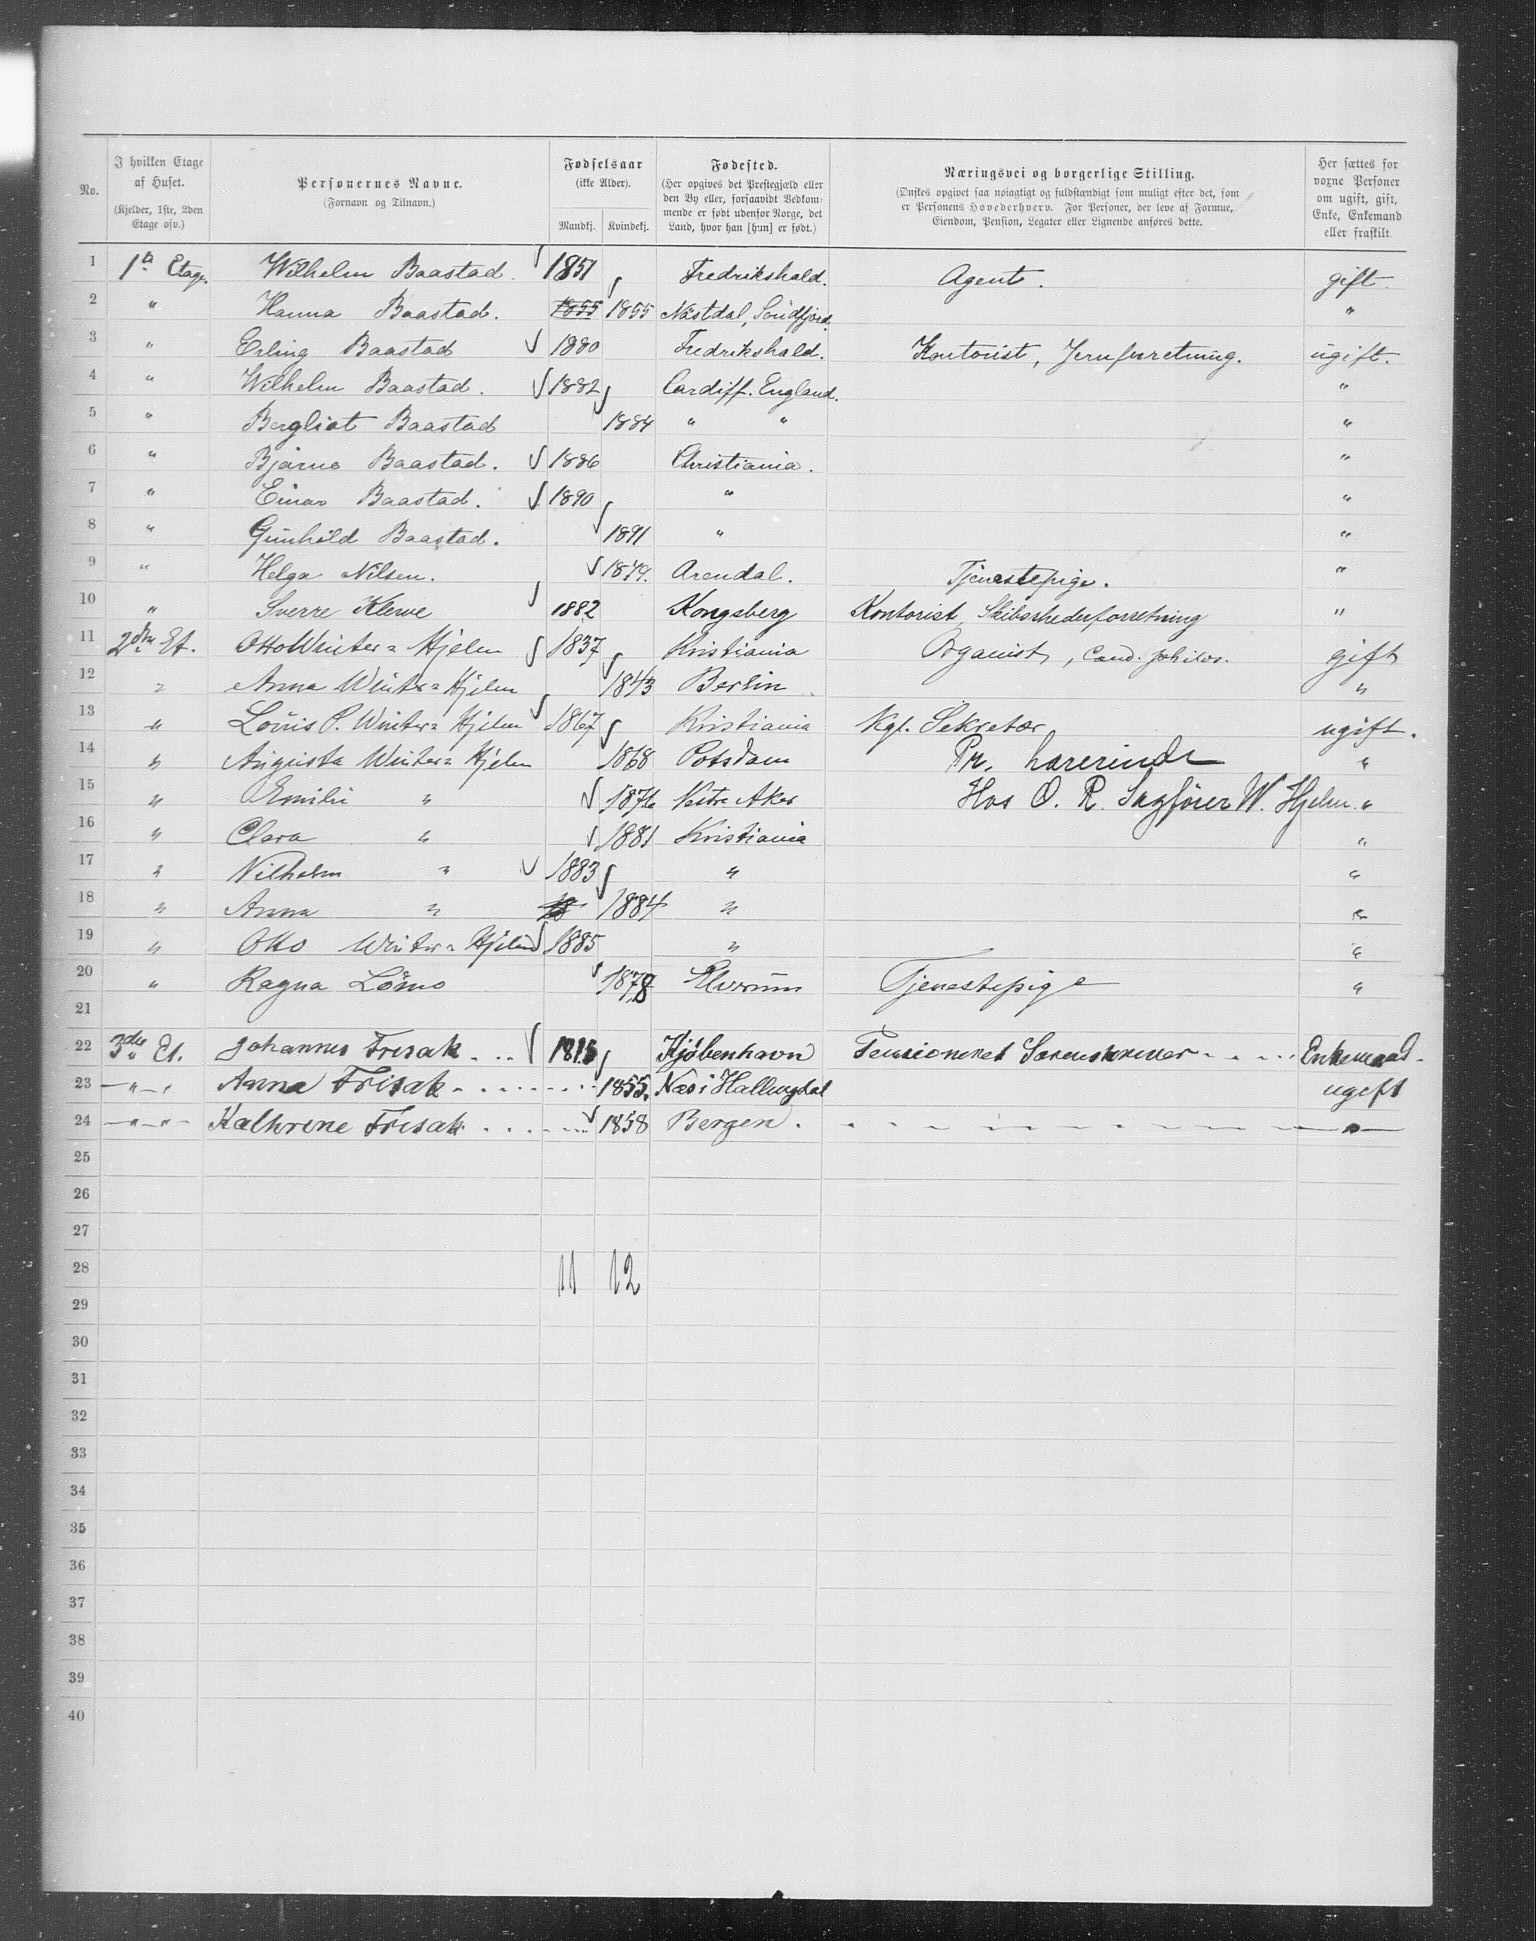 No. | I hvilken Etage af Huset. (Kjelder, 1ste, 2den Etage osv.) | Personernes Navne. (Fornavn og Tilnavn.) | Fødselsaar (ikke Alder). Mandkj. Kvindekj. | Fødested. (Her opgives det Præstegjæld eller den By eller, forsaavidt Vedkommende er født udenfor Norge, det Land, hvor han [hun] er født.) | Næringsvei og borgerlige Stilling. (Ønskes opgivet saa nøiagtigt og fuldstændigt som muligt efter det, som er Personens Hovederhverv. For Personer, der leve af Formue, Eiendom, Pension, Legater eller Lignende anføres dette. | Her sættes for voxne Personer om ugift, gift, Enke, Enkemand eller fraskilt.
1 1ste Etage. Wilhelm Baastad. 1851 Fredrikshald. Agent. gift.
2 " Hanna Baastad. 1855 1855 Nastdal, Söndfjord. "
3 " Erling Baastad 1880 Fredrikshald. Kontorist, Jernforretning. ugift.
4 " Wilhelm Baastad. 1882 Cardiff. England. "
5 " Bergliot Baastad 1884 " " "
6 " Bjarne Baastad. 1886 Christiania. "
7 " Einar Baastad. 1890 " "
8 " Gunhild Baastad. 1891 " "
9 " Helga Nilsen. 1879. Arendal. Tjenestepige. "
10 " Sverre Klewe 1882 Kongsberg Kontorist, Skibsrhederforretning "
11 2den Et. Otto Winter=Hjelm 1837 Kristiania Organist, Cand. philos. gift
12 " Anna Winter=Hjelm 1843 Berlin "
13 " Louis P. Winter=Hjelm 1867 Kristiania Kgl. Sekretær ugift.
14 " Augusta Winter=Hjelm 1868 Potsdam Pr. Lærerinde "
15 " Emilie " 1876 Vestre Aker Hos O. R. Sagfører W. Hjelm. "
16 " Clara " 1881 Kristiania "
17 " Vilhelm " 1883 " "
18 " Anna " 18 1884 " "
19 " Otto Winter=Hjelm 1885 " "
20 " Ragna Lömo 1878 Elverum Tjenestepige "
21
22 3die Et. Johannes Frisak. .. 1815 Kjøbenhavn Pensioneret Sorenskriver - . . . . Enkemand.
23 — " — " Anna Frisak - . . . . . 1855. Næs i Hallingdal ugift
24 — " — " — Kathrine Frisak . . . . . 1858 Bergen. — " —
25
26
27
28 11 12
29
30
31
32
33
34
35
36
37
38
39
40